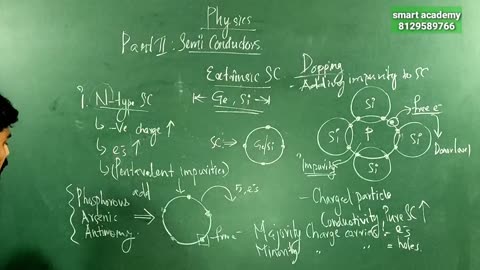 smart academy
8129589766
Physics
Part II : Semi Conductors
Extrinsic SC
Ge, Si
Dopping
- Adding impurity to SC
1. N-type SC
↳ -Ve charge ↑
↳ e's ↑
↳ (Pentavalent impurities)
Phosphorous
Arsenic
Antimony
add
SC →
Ge/Si
5, e's
free
Si
Si
P
Si
Si
free e-
Donor level
Impurity
- Charged particle
Conductivity Pure SC ↑
- Majority Charge carriers = e's
Minority " " = holes.